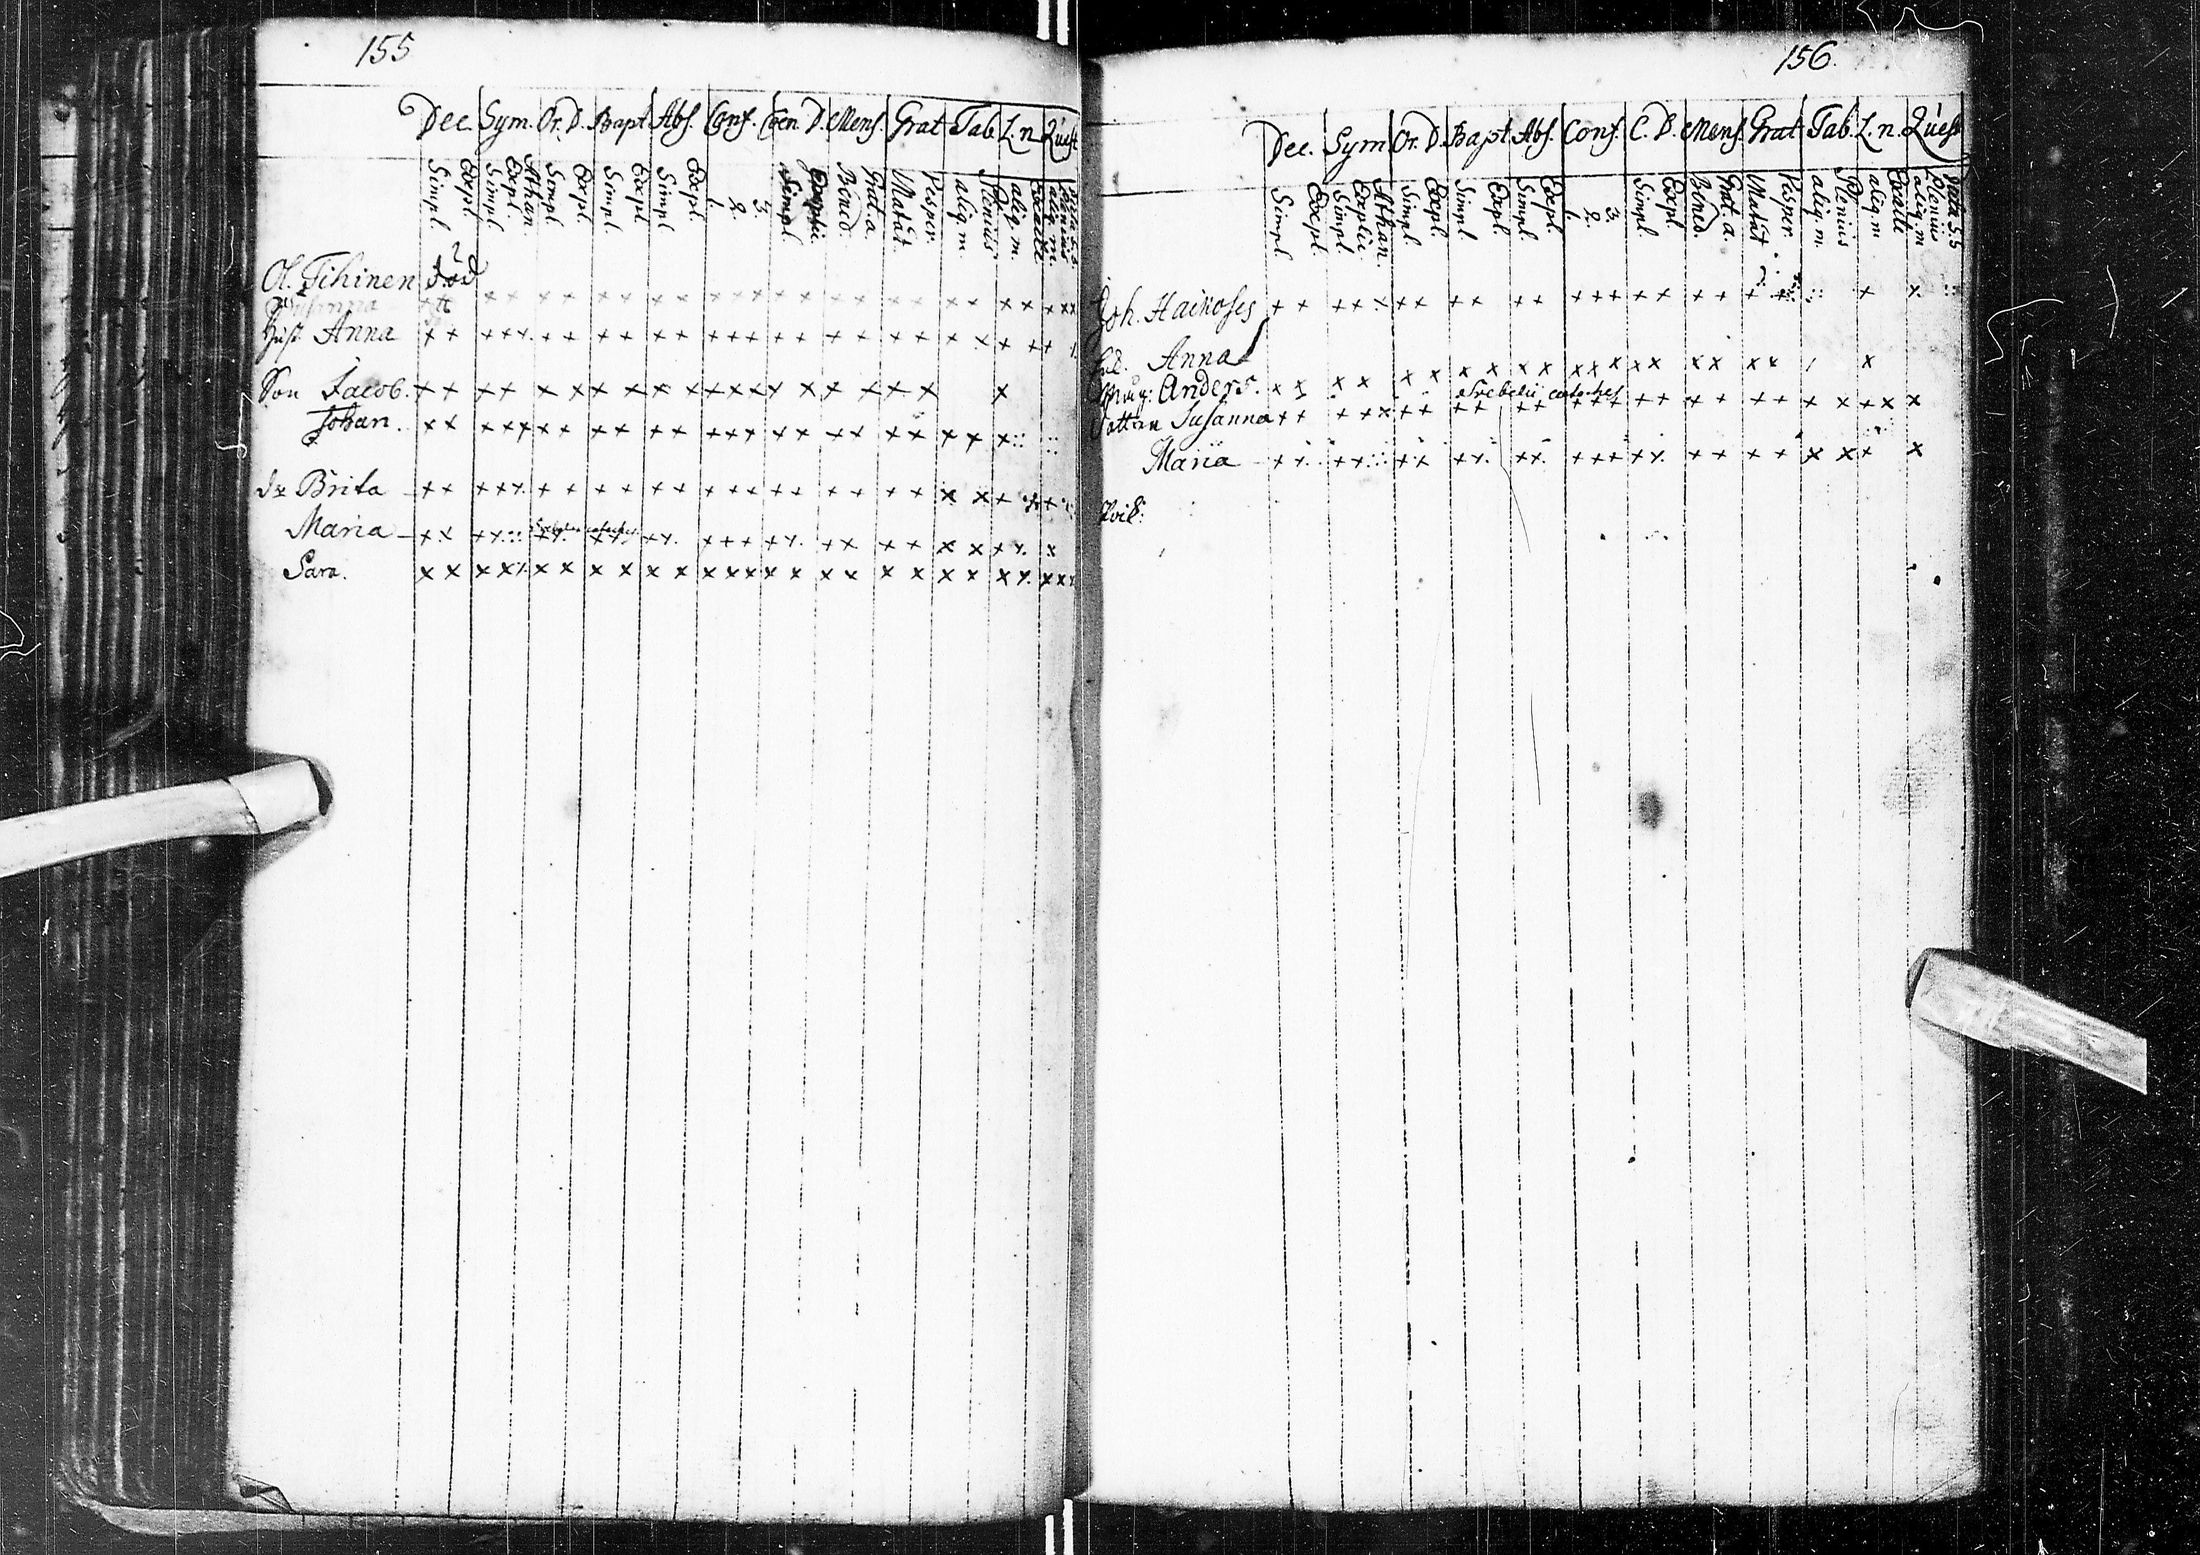 155
Dec. Sym. Or. D. Bapt. Abs. Conf. Coen. D. Mens. Grat. Tab. L. n. Quæst.
Simpl. Expl. Simpl. Expl. Athan. Simpl. Expl. Simpl. Expl. Simpl. Expl. 1. 2. 3. Simpl. Explic Bened. Grat. a. Matut. Vesper. aliq. m. Plenius aliq. m. Exacte aliq. m. Plenius
Ol. Tihinen död
Hust. Anna
Son Jacob.
Johan.
dr Brita
Maria
Sara.
156.
Dec. Sym. Or. D. Bapt. Abs. Conf. C. D. Mens. Grat. Tab. L. n. Quæst
Simpl. Expl. Simpl. Explic Athan. Simpl. Expl. Simpl. Expl. Simpl. Expl. 1. 2. 3. Simpl. Expl. Bened. Grat. a. Matut Vesper. aliq. m. Plenius aliq. m Exacte aliq. m Plenius
Joh. Hainoses
Anna
Anders. Svebelii cateches
Susanna
Maria